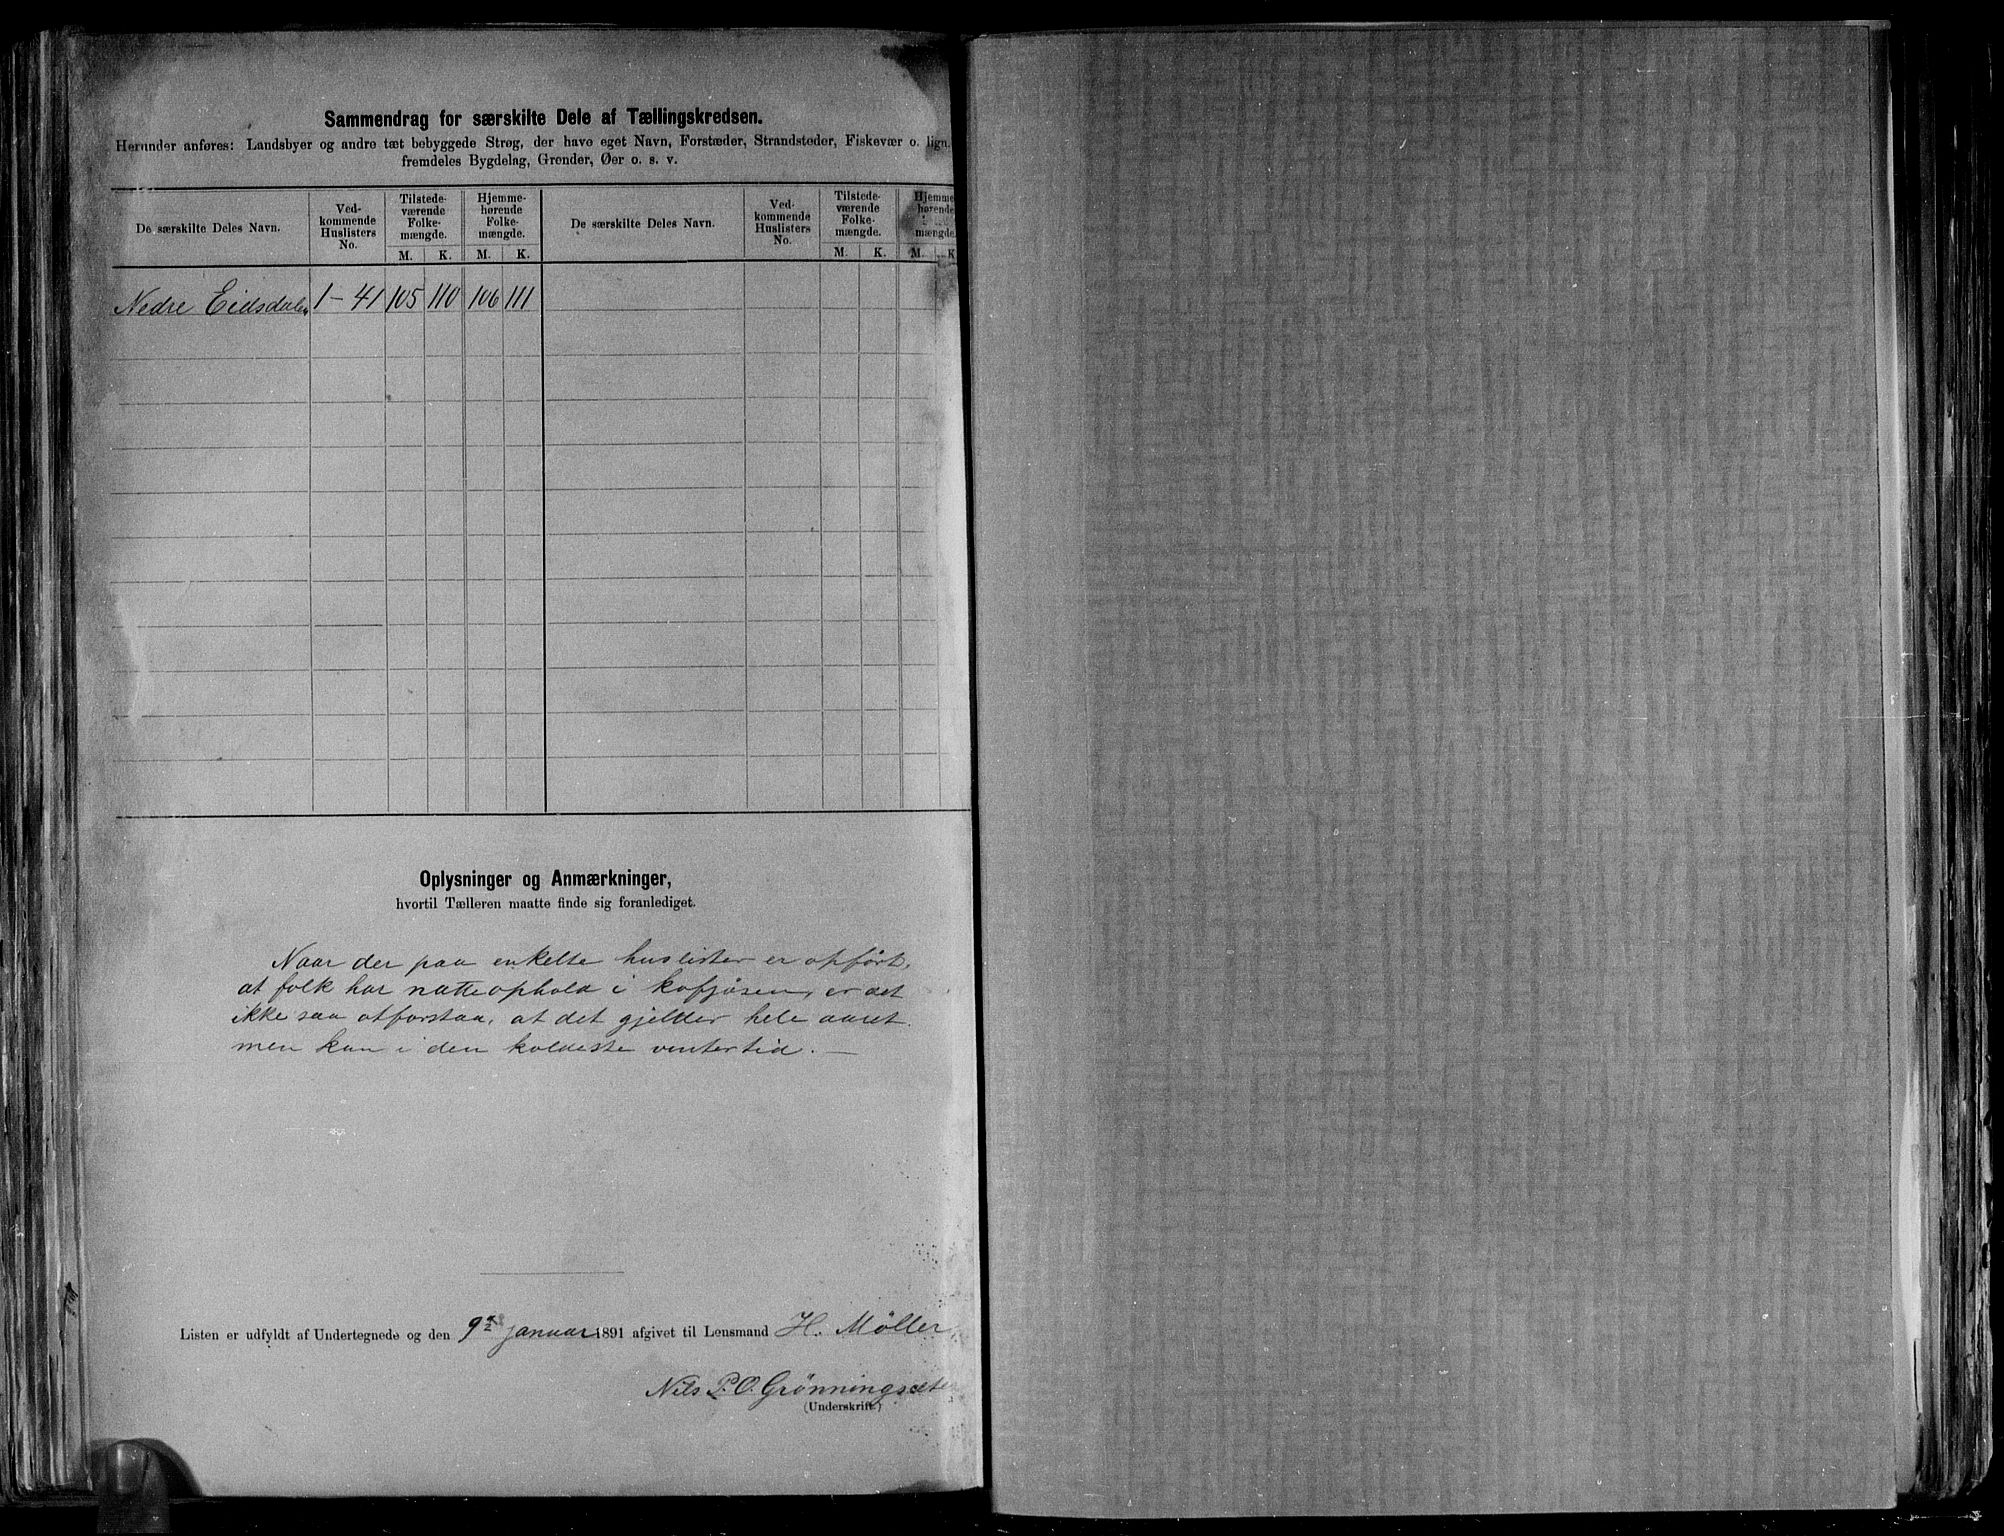 Sammendrag for særskilte Dele af Tællingskredsen.
Herunder anføres: Landsbyer og andre tæt bebyggede Strøg, der have eget Navn, Forstæder, Strandsteder, Fiskevær o. lign.
fremdeles Bygdelag, Grender, Øer o. s. v.
De særskilte Deles Navn. Ved-kommende Huslisters No. Tilstede-værende Folke-mængde. Hjemme-hørende Folke-mængde. De særskilte Deles Navn. Ved-kommende Huslisters No. Tilstede-værende Folke-mængde. Hjemme-hørende Folke-mængde.
M. K. M. K. M. K. M. K.
Nedre Eidsdalen 1-41 105 110 106 111
Oplysninger og Anmærkninger,
hvortil Tælleren maatte finde sig foranlediget.
Naar der paa enkelte huslister er opført,
at folk har natteophold i kofjøsen, er det
ikke saa atforstaa, at det gjelder hele aaret
men kun i den koldeste vintertid. —
Listen er udfyldt af Undertegnede og den 9de januar 1891 afgivet til Lensmand H. Møller
Nils P. O. Grønningsæter
(Underskrift.)